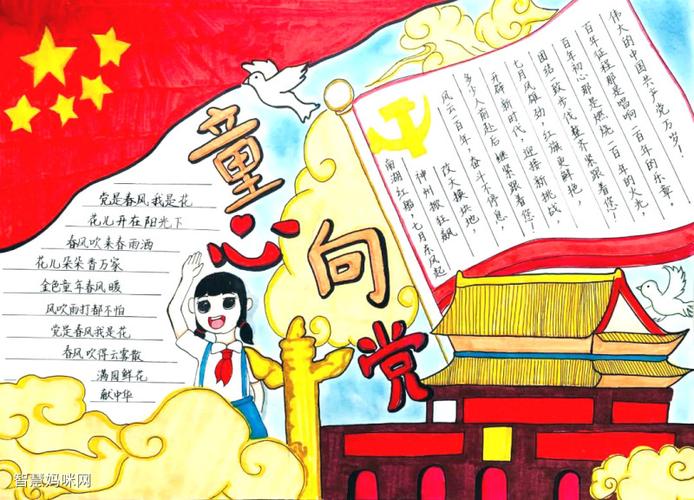 童心向党
党是春风我是花
花儿开在阳光下
春风吹来春雨洒
花儿朵朵香万家
金色童年春风暖
风吹雨打都不怕
党是春风我是花
春风吹得云雾散
满园鲜花
献中华
南湖红船,七月东风起
神州掀狂飙
改天换块地
风云一百年,奋斗不停息,
多少人前赴后继紧跟着您!
开辟新时代,迎接新挑战,
七月风雄劲,红旗更鲜艳,
团结一致步伐整齐紧跟着您!
百年初心那是燃烧一百年的火光,
百年征程那是唱响一百年的乐章
伟大的中国共产党万岁!
智慧妈咪网